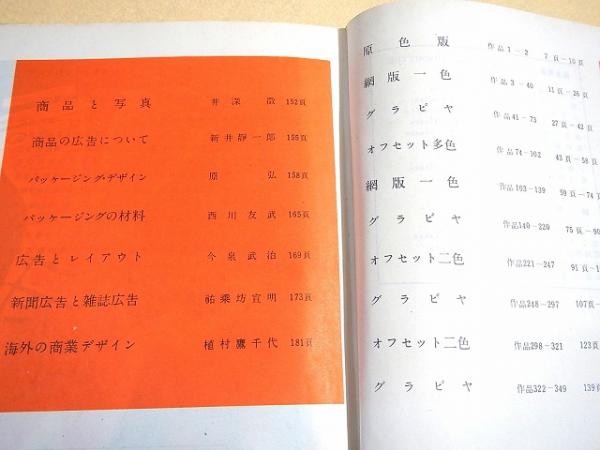 商品と写真 井深徴 152頁
商品の広告について 新井靜一郎 155頁
パッケージング・デザイン 原弘 158頁
パッケージングの材料 西川友武 165頁
広告とレイアウト 今泉武治 169頁
新聞広告と雑誌広告 祐乗坊宣明 173頁
海外の商業デザイン 植村鷹千代 181頁
原色版 作品1−2 7頁−10頁
網版一色 作品3−40 11頁−26頁
グラビヤ 作品41−73 27頁−42頁
オフセット多色 作品74−102 43頁−58頁
網版一色 作品103−139 59頁−74頁
グラビヤ 作品140−220 75頁−90
オフセット二色 作品221−247 91頁−1
グラビヤ 作品248−297 107頁−
オフセット二色 作品298−321 123頁
グラビヤ 作品322−349 139頁